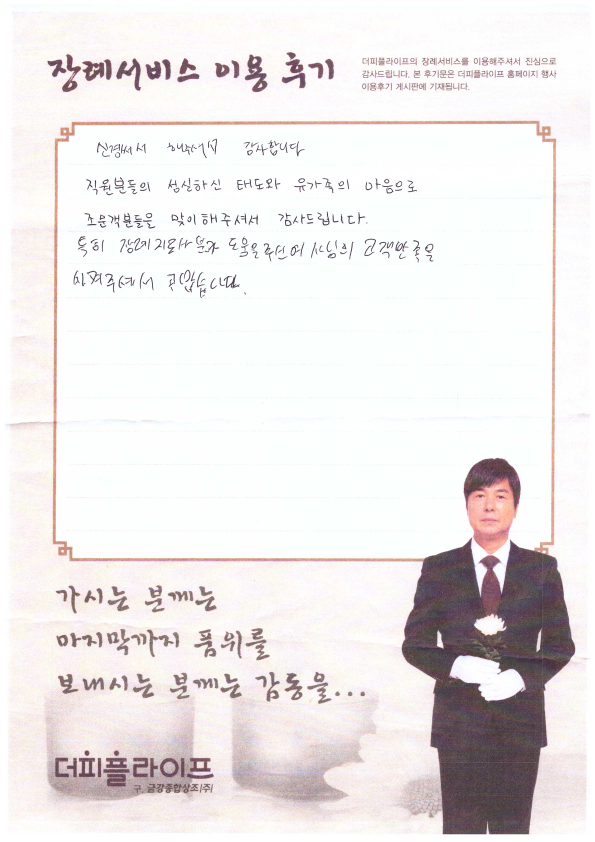 장례서비스 이용 후기
더피플라이프의 장례서비스를 이용해주셔서 진심으로
감사드립니다. 본 후기문은 더피플라이프 홈페이지 행사
이용후기 게시판에 기재됩니다.
신경써서 해주셔서 감사합니다
직원분들의 성실하신 태도와 유가족의 마음으로
조문객분들을 맞이해주셔서 감사드립니다.
특히 장례지도사분과 도움을주신 여사님의
고맙습니다.
가시는 분께는
마지막까지 품위를
보내시는 분께는 감동을...
더피플라이프
구. 금강종합상조(주)